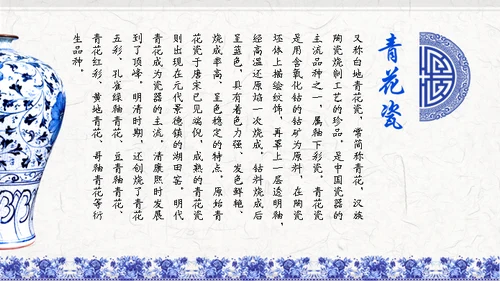 青花瓷
又称白地青花瓷，常简称青花，汉族
陶瓷烧制工艺的珍品，是中国瓷器的
主流品种之一，属釉下彩瓷。青花瓷
是用含氧化钴的钴矿为原料，在陶瓷
坯体上描绘纹饰，再罩上一层透明釉，
经高温还原焰一次烧成。钴料烧成后
呈蓝色，具有着色力强、发色鲜艳、
烧成率高、呈色稳定的特点。原始青
花瓷于唐宋已见端倪，成熟的青花瓷
则出现在元代景德镇的湖田窑。明代
青花成为瓷器的主流。清康熙时发展
到了顶峰。明清时期，还创烧了青花
五彩、孔雀绿釉青花、豆青釉青花、
青花红彩、黄地青花、哥釉青花等衍
生品种。